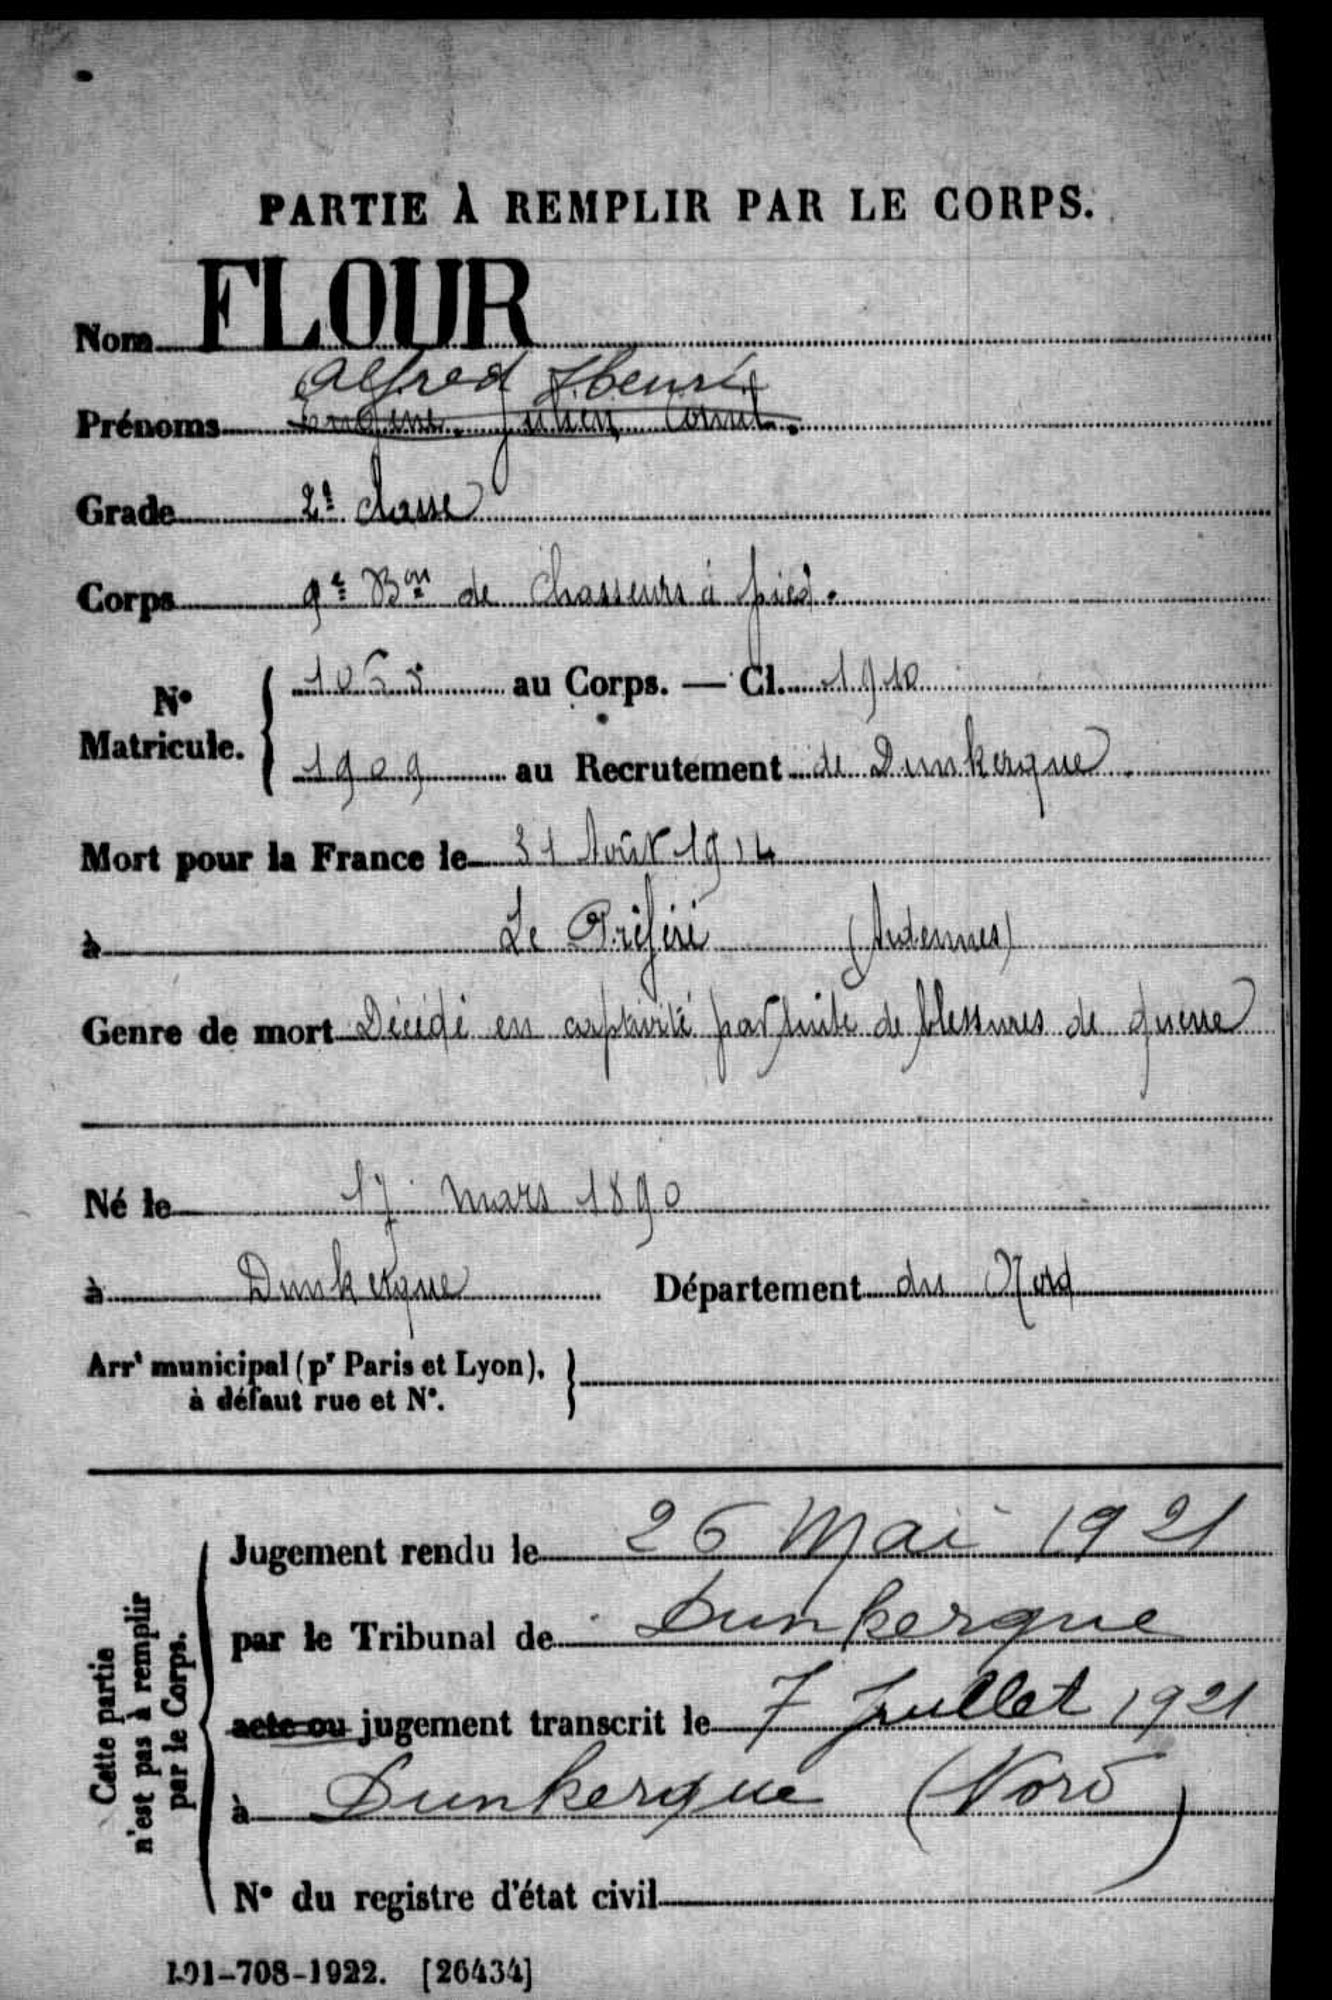 PARTIE À REMPLIR PAR LE CORPS.
Nom FLOUR
Alfred Henri
Prénoms Eugène Julien Cornil.
Grade 2e classe
Corps 9e Bon de Chasseurs à pied.
No Matricule. { 1055 au Corps. — Cl. 1910
1909 au Recrutement de Dunkerque
Mort pour la France le 31 Août 1914
à Le Préféré (Ardennes)
Genre de mort Décédé en captivité par suite de blessures de guerre
Né le 17 mars 1890
à Dunkerque Département du Nord
Arrt municipal (pr Paris et Lyon), }
à défaut rue et No.
Cette partie
n'est pas à remplir
par le Corps.
Jugement rendu le 26 Mai 1921
par le Tribunal de Dunkerque
acte ou jugement transcrit le 7 Juillet 1921
à Dunkerque (Nord)
No du registre d'état civil
101-708-1922. [26434]